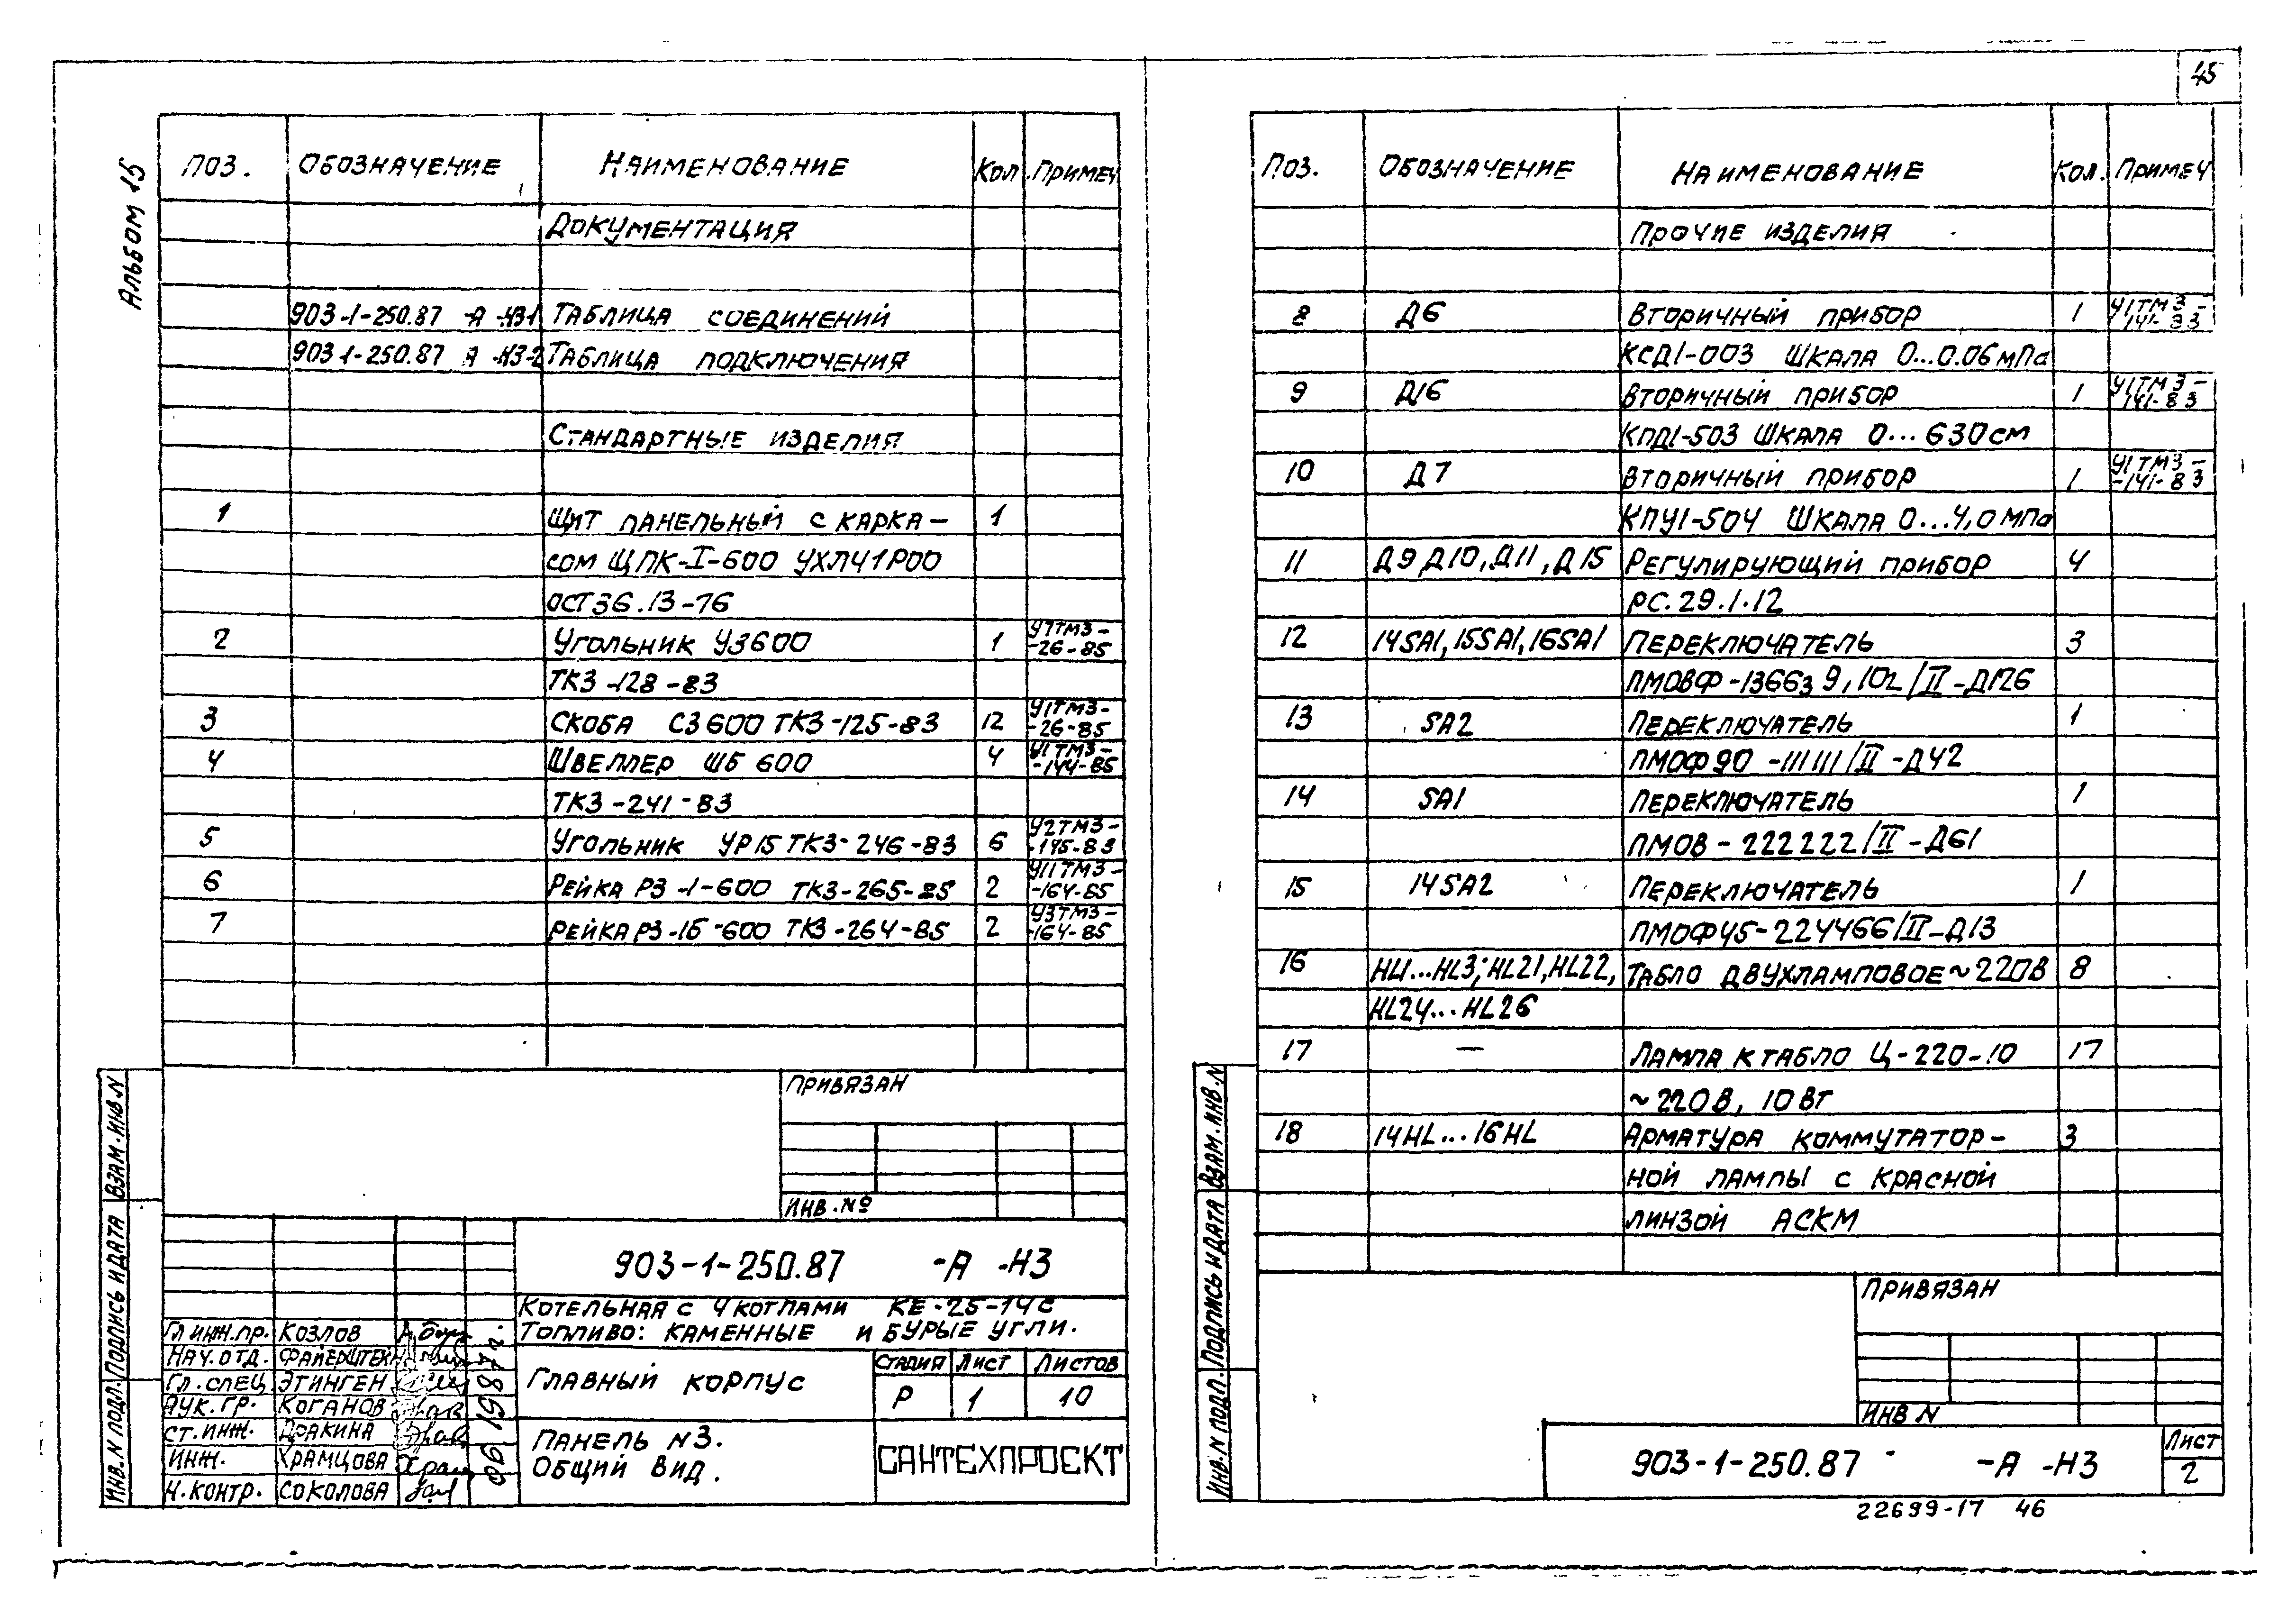 45
Альбом 15
Поз. Обозначение Наименование Кол Примеч
Документация
903-1-250.87 -А -Н3-1 Таблица соединений
903-1-250.87 А -Н3-2 Таблица подключения
Стандартные изделия
1 Щит панельный с карка- 1
сом ЩПК-I-600 УХЛЧ1Р00
ОСТ36.13-76
2 Угольник У3600 1 У7ТМ3-
-26-85
ТК3-128-83
3 Скоба С3600 ТК3-125-83 12 У1ТМ3-
-26-85
4 Швеллер ШБ 600 4 У1ТМ3-
-144-85
ТК3-241-83
5 Угольник УР15 ТК3-246-83 6 У2ТМ3-
-145-83
6 Рейка Р3-1-600 ТК3-265-85 2 У11ТМ3-
-164-85
7 Рейка Р3-1Б-600 ТК3-264-85 2 У3ТМ3-
-164-85
Привязан
Инв. №
903-1-250.87 -А -Н3
Котельная с 4 котлами КЕ-25-14С
Топливо: каменные и бурые угли.
Гл инж.пр. Козлов
Нач. отд. Файерштейн
Гл. спец Этинген
Рук. гр. Коганов
Ст. инж. Дракина
Инж. Храмцова
Н. контр. Соколова
06 1987г.
Главный корпус
Стадия Лист Листов
Р 1 10
Панель N3.
Общий вид.
САНТЕХПРОЕКТ
Инв. N подл. Подпись и дата Взам. инв. N
Поз. Обозначение Наименование Кол. Примеч
Прочие изделия
8 Д6 Вторичный прибор 1 У1ТМ3-
141-83
КСД1-003 Шкала 0...0.06мПа
9 Д16 Вторичный прибор 1 У1ТМ3-
141-83
КПД1-503 Шкала 0...630см
10 Д7 Вторичный прибор 1 У1ТМ3-
-141-83
КПУ1-504 Шкала 0...4,0мПа
11 Д9 Д10, Д11, Д15 Регулирующий прибор 4
РС.29.1.12
12 14SA1, 15SA1, 16SA1 Переключатель 3
ПМОВФ-136639,102/II-Д126
13 SA2 Переключатель 1
ПМОФ90-111111/II-Д42
14 SA1 Переключатель 1
ПМОВ-222222/II-Д61
15 14SA2 Переключатель 1
ПМОФ45-224466/II-Д13
16 HL1...HL3; HL21, HL22, Табло двухламповое ~220В 8
HL24...HL26
17 — Лампа к табло Ц-220-10 17
~220В, 10Вт
18 14HL...16HL Арматура коммутатор- 3
ной лампы с красной
линзой АСКМ
Привязан
Инв N
Инв. N подл. Подпись и дата Взам. инв. N
903-1-250.87 -А -Н3
Лист
2
22699-17 46